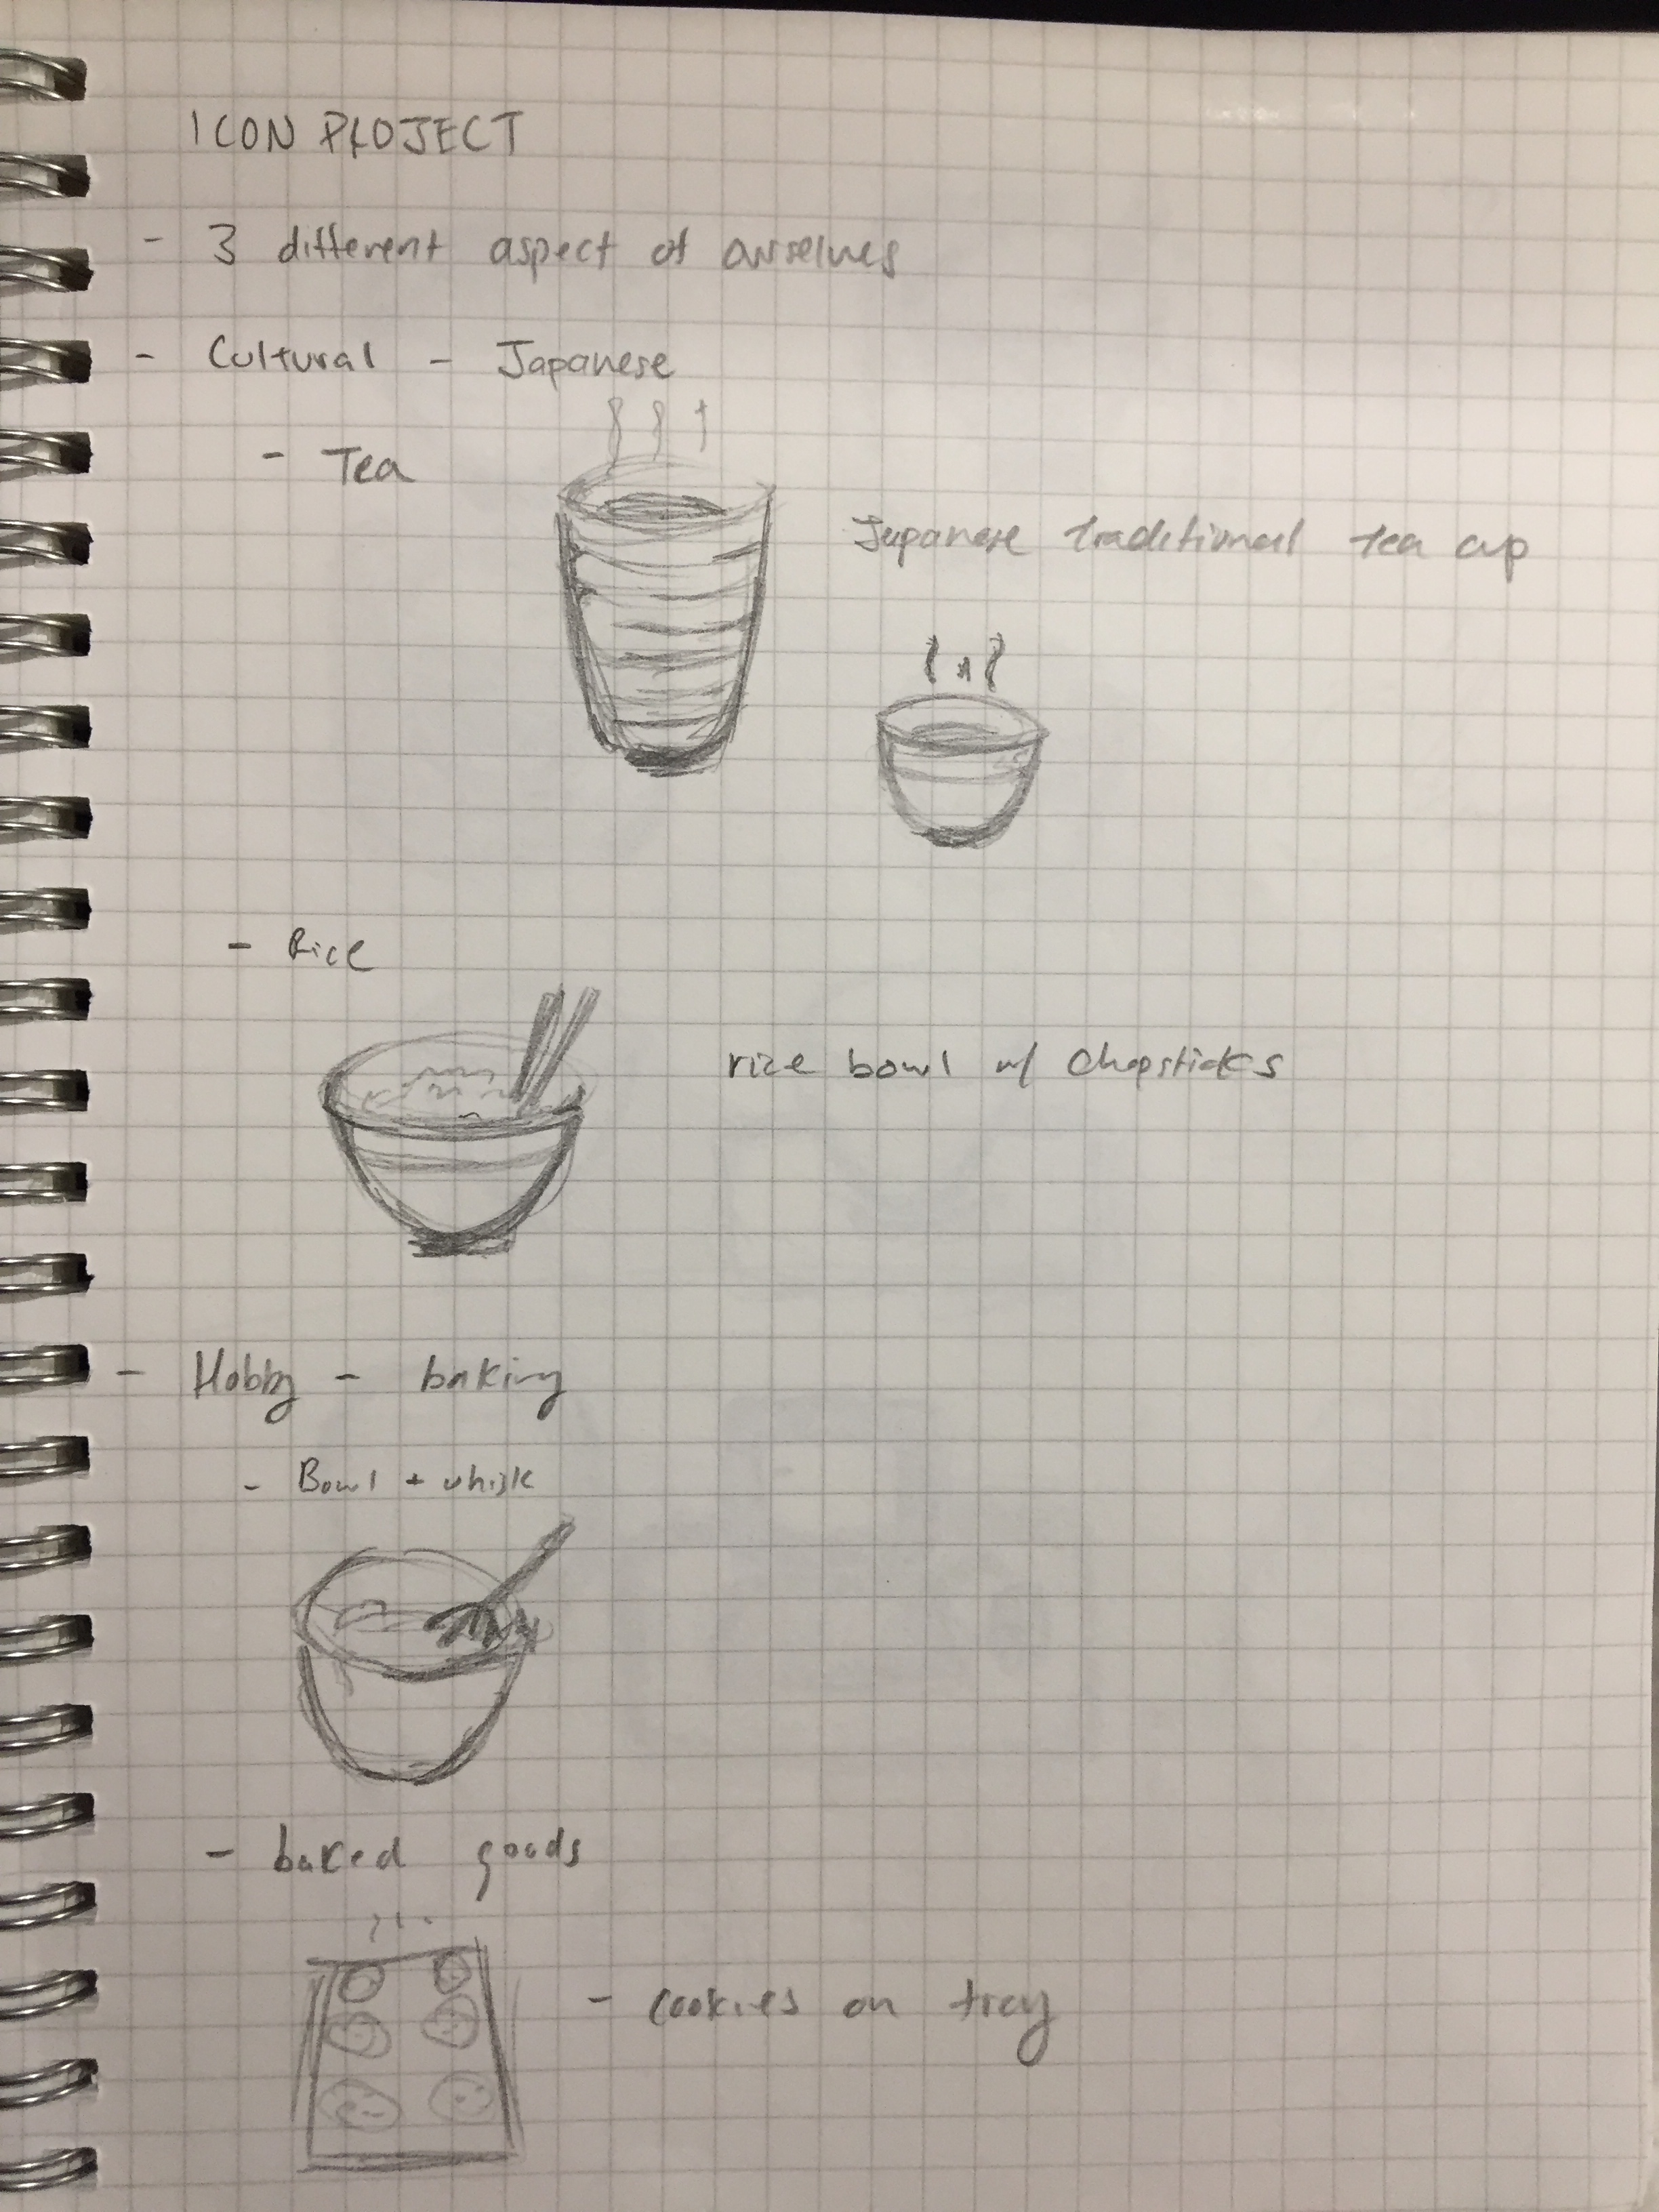 ICON PROJECT
- 3 different aspect of ourselves
- Cultural - Japanese
- Tea
Japanese traditional tea cup
- Rice
rice bowl w/ chopsticks
- Hobby - baking
- Bowl + whisk
- baked goods
- cookies on tray